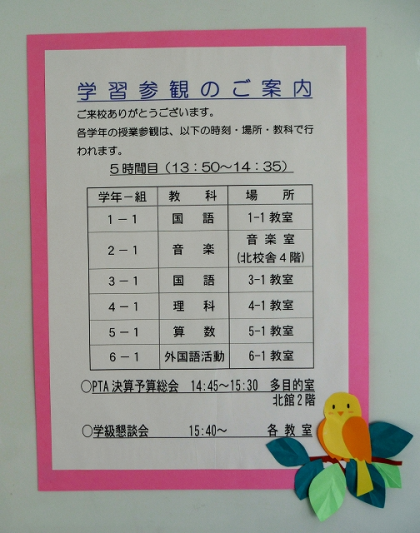 学習参観のご案内
ご来校ありがとうございます。
各学年の授業参観は、以下の時刻・場所・教科で行
われます。
5時間目(13:50~14:35)
学年－組 教科 場所
1－1 国語 1-1教室
2－1 音楽 音楽室
(北校舎4階)
3－1 国語 3-1教室
4－1 理科 4-1教室
5－1 算数 5-1教室
6－1 外国語活動 6-1教室
○PTA決算予算総会 14:45～15:30 多目的室
北館2階
○学級懇談会 15:40～ 各教室